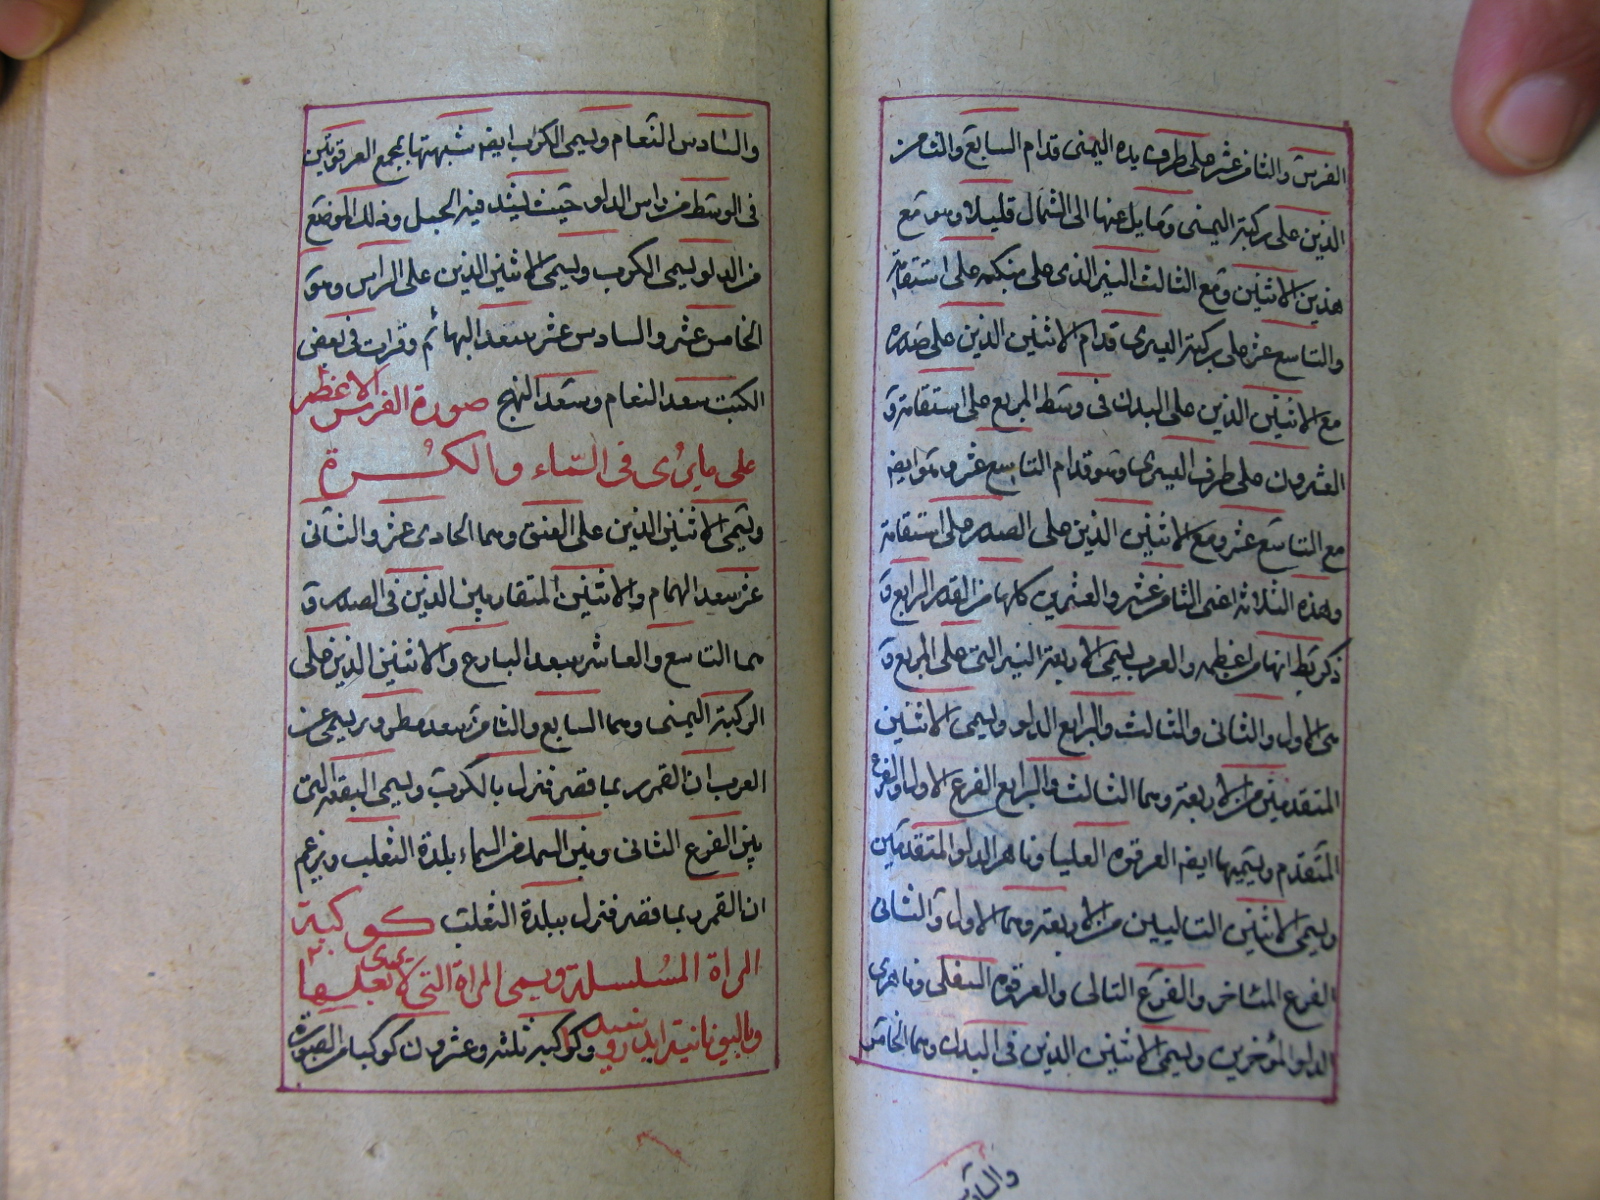 الفرس والثامن عشر على طرف يده اليمنى قدام السابع والثامن
الذين على ركبته اليمنى وتمايل عنها الى الشمال قليلا وهو مع
هذين الاثنين ومع الثالث النير الذى على منكبه على استقامة
والتاسع عشر على ركبته اليسرى قدام الاثنين الذين على صدره
مع الاثنين الذين على البدن فى وسط المربع على استقامة و
العشرون على طرف اليسرى وهو قدام التاسع عشر وهو ايضا
مع التاسع عشر ومع الاثنين الذين على الصدر على استقامة
وهذه الثلاثة اعنى الثامن عشر والعشرين كلها من القدر الرابع و
ذكر بط انها من اعظمه والعرب يسمى الاربعة النير التى على المربع و
هى الاول والثانى والثالث والرابع الدلو ويسمى الاثنين
المتقدمين من الاربعة وهما الثالث والرابع الفرع الاول والفرع
المتقدم ويسميها ايضا العرقوه العليا وناهز الدلو المتقدمين
ويسمى الاثنين التاليين من الاربعة وهما الاول والثانى
الفرع المتاخر والفرع التالى والعرقوه السفلى وناهزى
الدلو المؤخرين ويسمى الاثنين الذين فى البدن وهما الخامس
والسادس
والسادس النعام ويسمى الكرب ايضا شبهتها بمجمع العرقوتين
فى الوسط من راس الدلو حيث يشد فيه الحبل وذلك الموضع
من الدلو يسمى الكرب ويسمى الاثنين الذين على الراس وهو
الخامس عشر والسادس عشر سعد البهائم وقرات فى بعض
الكتب سعد النعام وسعد النهج صورة الفرس الاعظم
على ما يرى فى السماء والكرة
ويسمى الاثنين الذين على العنق وهما الحادى عشر والثانى
عشر سعد الهمام والاثنين المتقاربين الذين فى الصدر و
هما التاسع والعاشر سعد البارع والاثنين الذين على
الركبة اليمنى وهما السابع والثامن سعد مطر ويسمى عن
العرب ان القمر ربما قصر فنزل بالكرب ويسمى البقعة التى
بين الفرع الثانى وبين السمك من السماء بلدة الثعلب ويزعم
ان القمر ربما قصر فنزل ببلدة الثعلب كوكبة
المراة المسلسلة ويسمى المراة التى لا بعل لها
وباليونانية وكوكبه ثلثة وعشرون كوكبا من الصورة